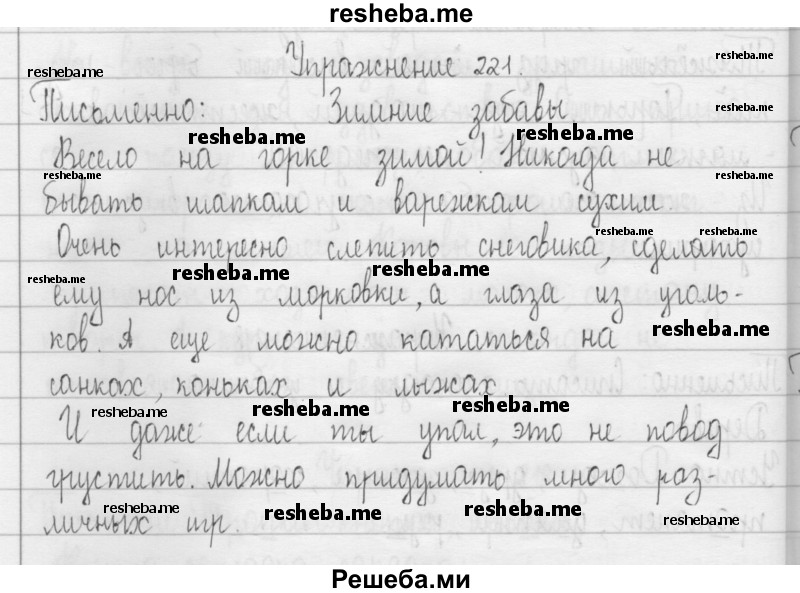 resheba.me
Упражнение 221.
resheba.me
Письменно: Зимние забавы
resheba.me
resheba.me resheba.me
Весело на горке зимой! Никогда не
resheba.me resheba.me
бывать шапкам и варежкам сухим
resheba.me resheba.me
Очень интересно слепить снеговика, сделать
resheba.me resheba.me resheba.me
ему нос из морковки, а глаза из уголь-
resheba.me
ков. А еще можно кататься на
санках, коньках и лыжах
resheba.me resheba.me resheba.me
И даже если ты упал, это не повод
грустить. Можно придумать много раз-
resheba.me resheba.me resheba.me resheba.me
личных игр.
Решеба.ми